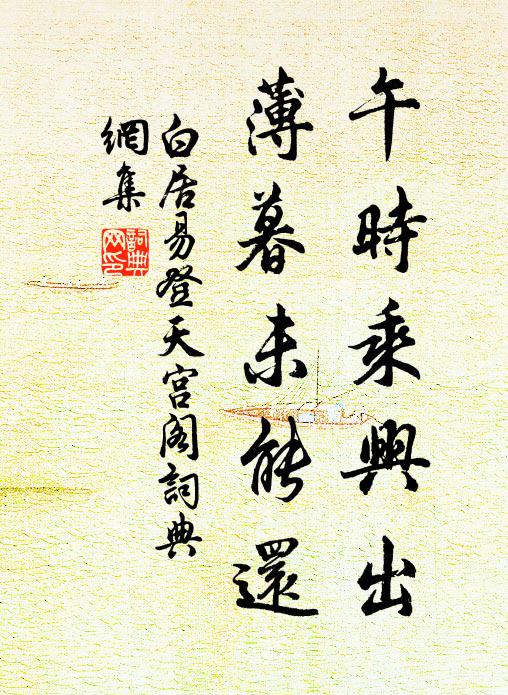 午時乘興出
薄暮未能還
白居易登天宮閣詞典
網集
詞典
網印